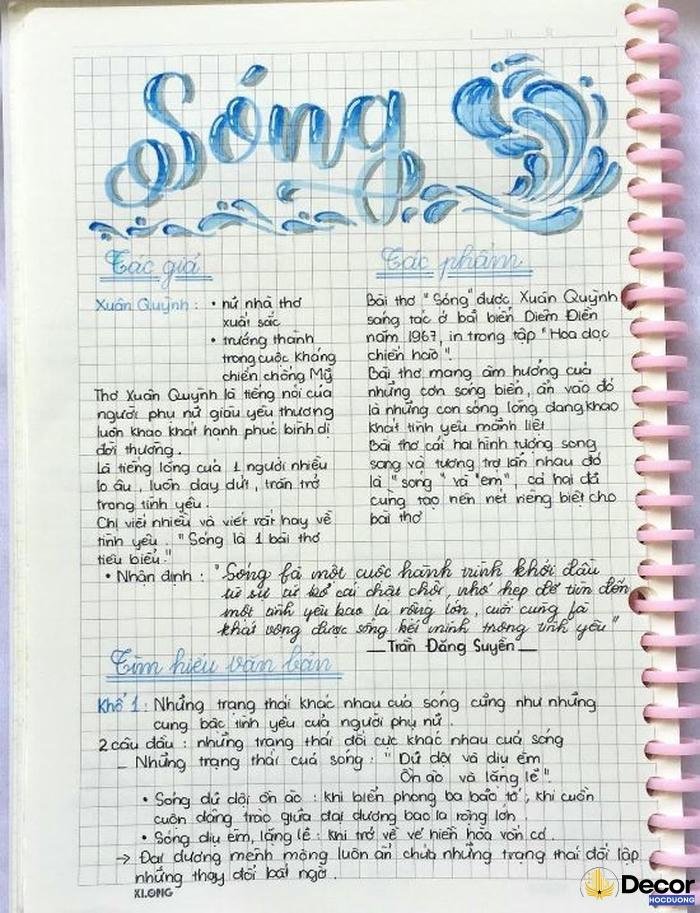 Sóng
Tác giả
Xuân Quỳnh : • nữ nhà thơ
xuất sắc
• trưởng thành
trong cuộc kháng
chiến chống Mỹ
Thơ Xuân Quỳnh là tiếng nói của
người phụ nữ giàu yêu thương
luôn khao khát hạnh phúc bình dị
đời thường.
là tiếng lòng của 1 người nhiều
lo âu, luôn day dứt, trăn trở
trong tình yêu.
Chị viết nhiều và viết rất hay về
tình yêu. "Sóng là 1 bài thơ
tiêu biểu."
Tác phẩm
Bài thơ "Sóng" được Xuân Quỳnh
sáng tác ở bãi biển Diêm Điền
năm 1967, in trong tập "Hoa dọc
chiến hào".
Bài thơ mang âm hưởng của
những cơn sóng biển, ẩn vào đó
là những con sóng lòng đang khao
khát tình yêu mãnh liệt
Bài thơ cái hai hình tượng song
song và tương trợ lẫn nhau đó
là "sóng" và "em", cả hai đã
cùng tạo nên nét riêng biệt cho
bài thơ
• Nhận định : "Sóng là một cuộc hành trình khởi đầu
từ sự từ bỏ cái chật chội, nhỏ hẹp để tìm đến
một tình yêu bao la rộng lớn, cuối cùng là
khát vọng được sống hết mình trong tình yêu"
— Trần Đăng Suyền —
Tìm hiểu văn bản
Khổ 1 : Những trạng thái khác nhau của sóng cũng như những
cung bậc tình yêu của người phụ nữ.
2 câu đầu : những trạng thái đối cực khác nhau của sóng
– Những trạng thái của sóng : "Dữ dội và dịu êm
Ồn ào và lặng lẽ".
• Sóng dữ dội ồn ào : khi biển phong ba bão tố, khi cuồn
cuộn dâng trào giữa đại dương bao la rộng lớn.
• Sóng dịu êm, lặng lẽ : khi trở về vẻ hiền hòa vốn có.
→ Đại dương mênh mông luôn ẩn chứa những trạng thái đối lập
những thay đổi bất ngờ.
KLONG
Decor
HOCDUONG